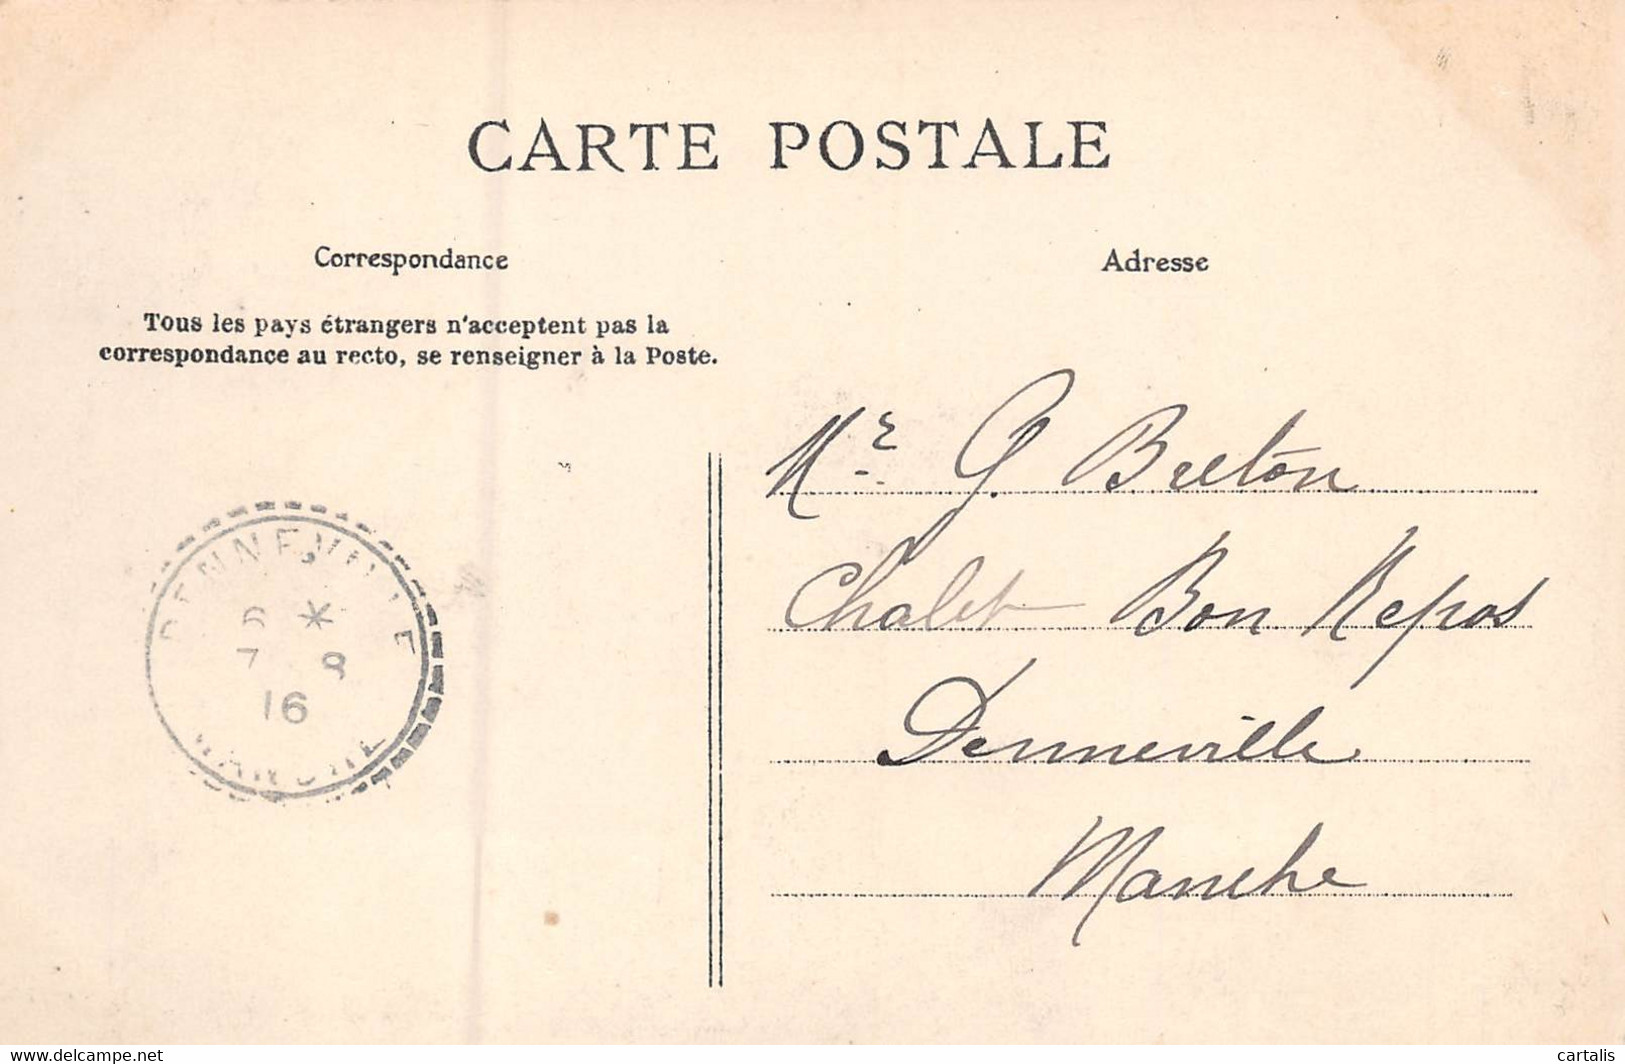 CARTE POSTALE
Correspondance
Adresse
Tous les pays étrangers n'acceptent pas la
correspondance au recto, se renseigner à la Poste.
Mr G. Breton
Chalet Bon Repos
Denneville
Manche
DENNEVILLE
6 *
7 8
16
MANCHE
www.delcampe.net
cartalis